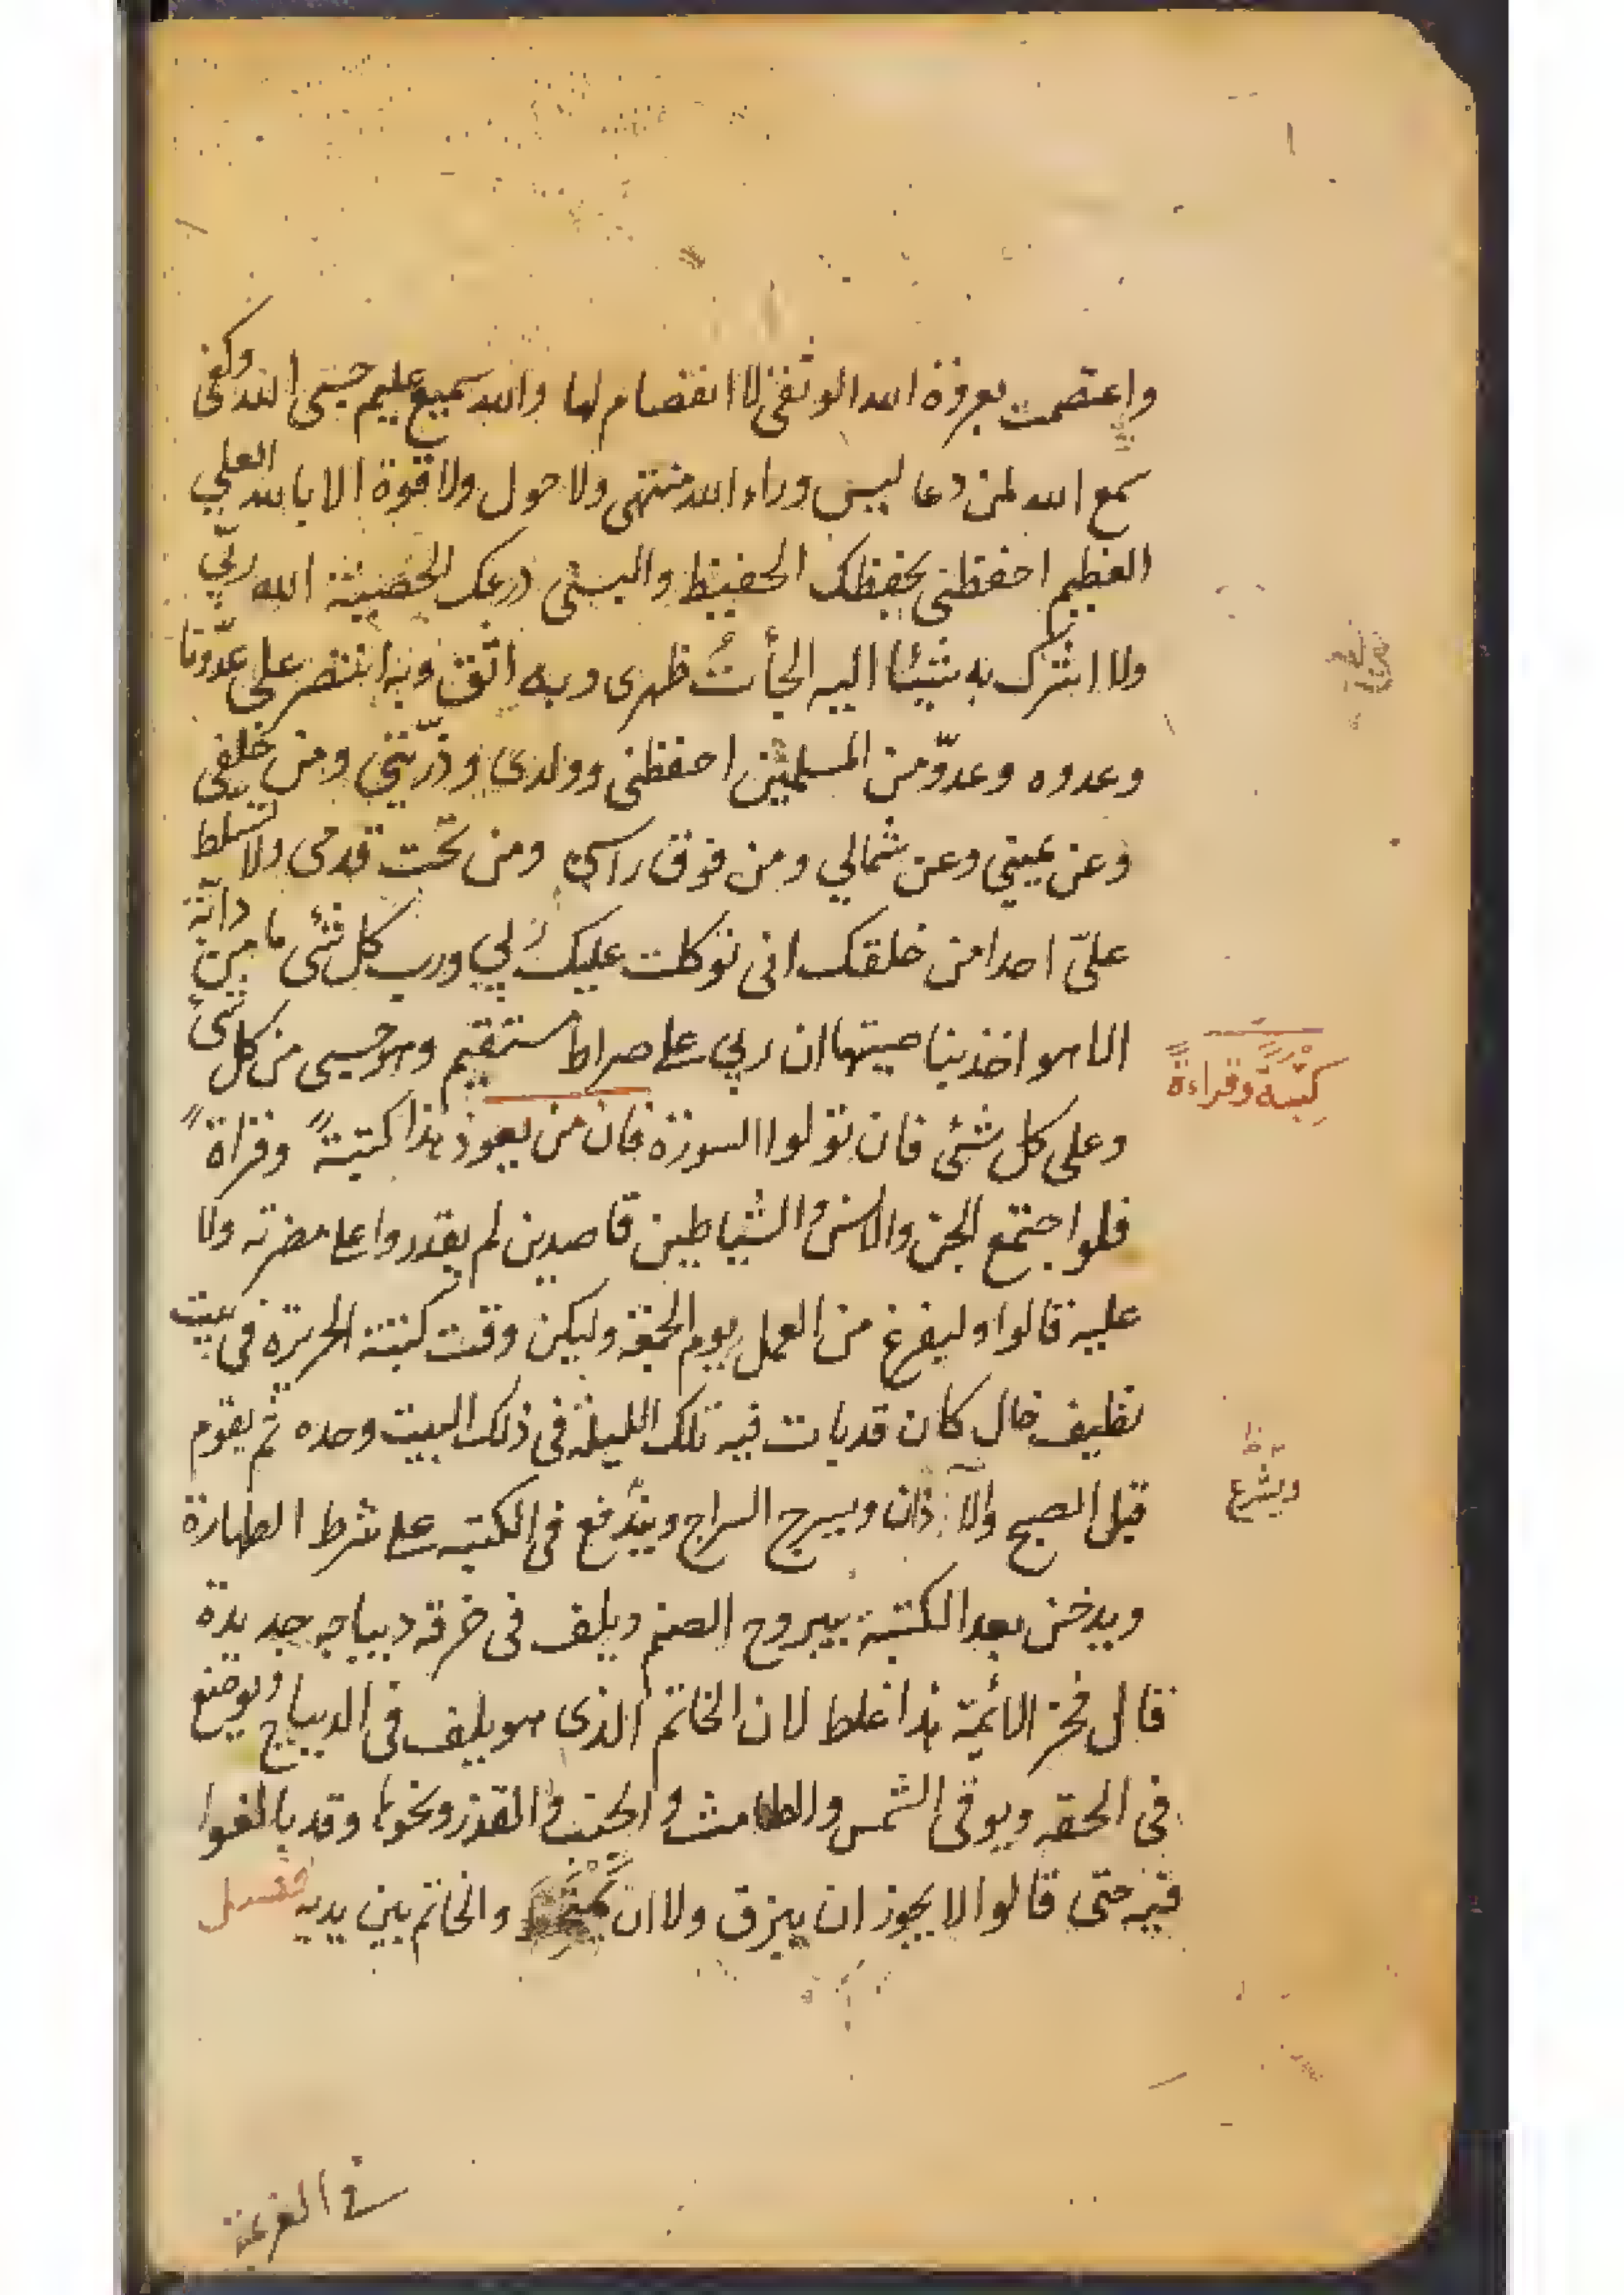 واعتصمت بعروة الله الوثقى لا انفصام لها والله سميع عليم حسبى الله وكفى
سمع الله لمن دعا ليس وراء الله منتهى ولا حول ولا قوة الا بالله العلي
العظيم احفظنى بحفظك الحفيظ والبسنى درعك الحصينة الله ربّي
ولا اشرك به شيئا اليه الجأتُ ظهرى وبه اثق وبه انتصر على عدوّنا
وعدوه وعدوّ من المسلمين احفظنى وولدى وذرّيتي ومن خلفي
وعن يميني وعن شمالي ومن فوق راسي ومن تحت قدمى ولا تسلط
علىّ احدا من خلقك انى توكلت عليك ربي ورب كل شئى ما من دابّة
الا هو اخذ بناصيتها ان ربي على صراط مستقيم وهو حسبى من كل شئ
وعلى كل شئى فان تولوا السورة فان من يعوذ بهذا كتبتةً وقراةً
فلو اجتمع الجن والانس والشياطين قاصدين لم يقدروا على مضرته ولا
عليه قالوا وليفرغ من العمل يوم الجمعة وليكن وقت كتبته الحريرة فى بيت
نظيف خال كان قد بات فيه تلك الليلة فى ذلك البيت وحده ثم يقوم
قبل الصبح والآذان ويسرج السراج ويندفع فى الكتبه على شرط الطهارة
ويدخن بعد الكتبة بيبروح الصنم ويلف فى خرقه ديباجه جديدة
قال فخر الائمة هذا غلط لان الخاتم الذى هو يلف فى الديباج ويوضع
فى الحقه ويوقى الشمس والطامث والجنب والقذر ونحوها وقد بالغوا
فيه حتى قالوا لا يجوز ان يبزق ولا ان يمتخط والخاتم بين يديه فصل
كتبةً وقراءةً
ويشرع
فى العزيمة